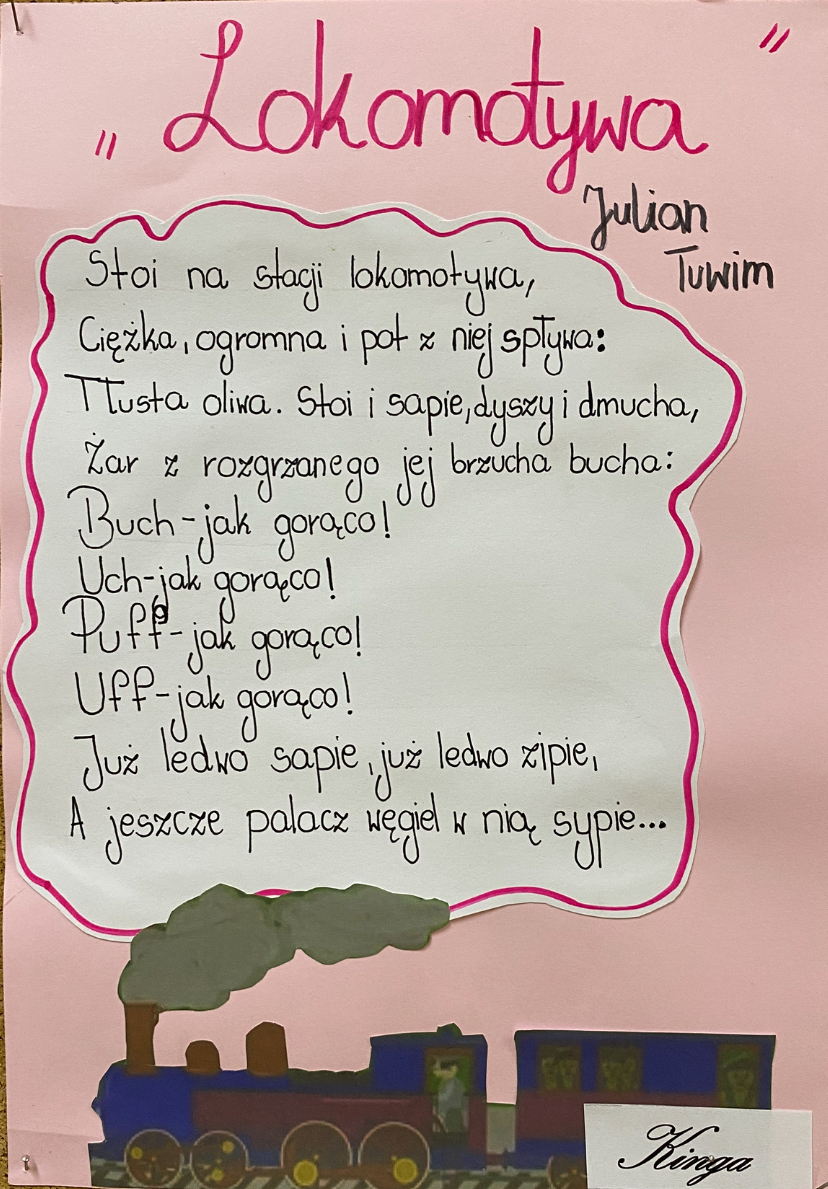 „Lokomotywa"
Julian
Tuwim
Stoi na stacji lokomotywa,
Ciężka, ogromna i pot z niej spływa:
Tłusta oliwa. Stoi i sapie, dyszy i dmucha,
Żar z rozgrzanego jej brzucha bucha:
Buch-jak gorąco!
Uch-jak gorąco!
Puff-jak gorąco!
Uff-jak gorąco!
Już ledwo sapie, już ledwo zipie,
A jeszcze palacz węgiel w nią sypie...
Kinga